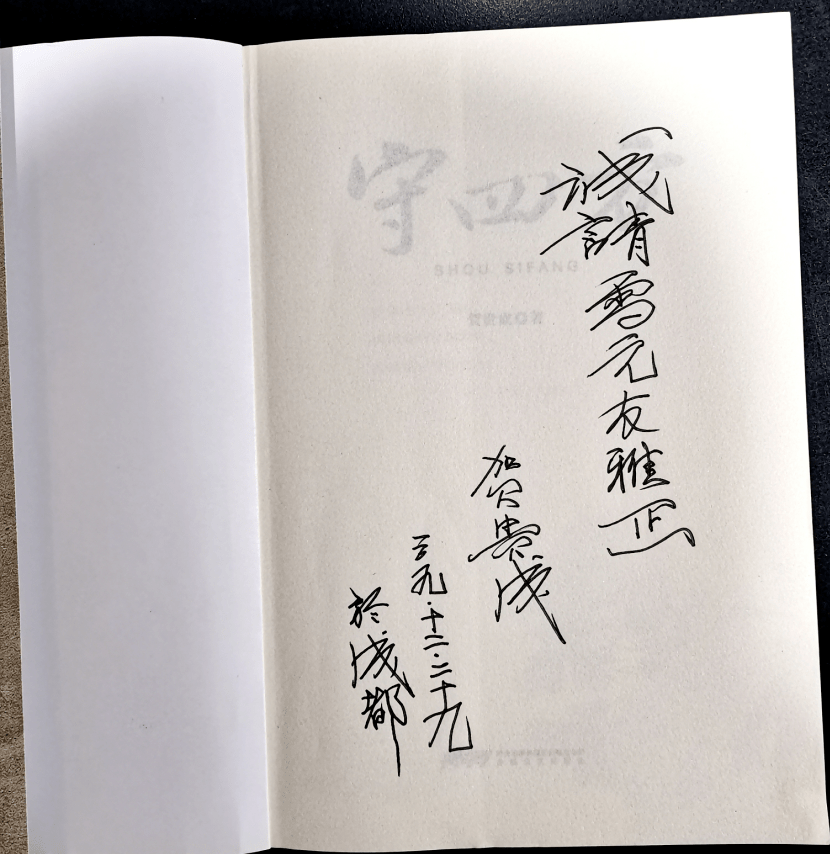 誠請雪元友雅正
贺贵成
二〇一九·十二·二十九
於成都
守四方
SHOU SIFANG
贺贵成◎著